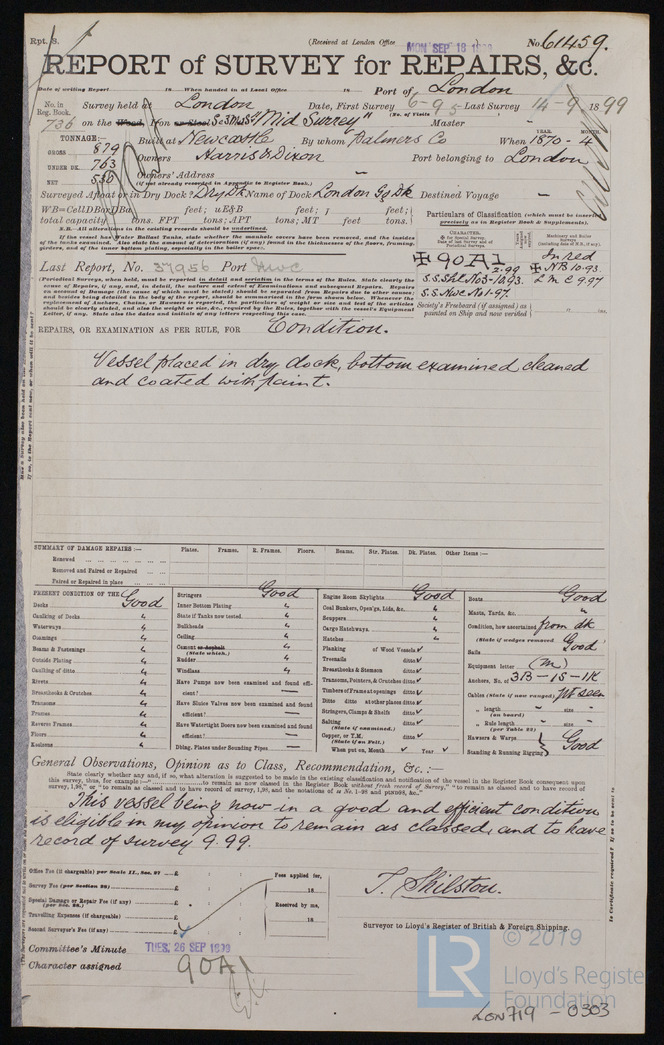 Rpt. 8.
(Received at London Office
MON SEP 18 1899
No. 61459.
REPORT of SURVEY for REPAIRS, &c.
Date of writing Report 18 When handed in at Local Office 18 Port of London
No. in Reg. Book. Survey held at London Date, First Survey 6-9 Last Survey 14-9 1899
(No. of Visits 5
736 on the Wood, Iron or Steel "Mid Surrey" Master
TONNAGE:—
GROSS 879
UNDER DK. 763
NET 536
Built at Newcastle By whom Palmers Co When 1870 - 4
YEAR. MONTH.
Owners Harris & Dixon Port belonging to London
Owners' Address
(if not already recorded in Appendix to Register Book.)
Surveyed Afloat or in Dry Dock? Dry Dk Name of Dock London Gg Dk Destined Voyage —
WB=CellDBorDBa feet; uE&B feet; f feet;
total capacity tons. FPT tons; APT tons; MT feet tons.
N.B.—All alterations in the existing records should be underlined.
If the vessel has Water Ballast Tanks, state whether the manhole covers have been removed, and the insides
of the tanks examined. Also state the amount of deterioration (if any) found in the thicknesses of the floors, framing,
girders, and of the inner bottom plating, especially in the boiler space.
Particulars of Classification (which must be inserted
precisely as in Register Book & Supplements).
CHARACTER.
✠ 90A1 2.99
S.S. Shl No3-10,93.
S.S. Nwc. No1-97.
In red
✠ NB 10.93.
LMC 9.97
Society's Freeboard (if assigned) as
painted on Ship and now verified
Last Report, No. 37956 Port Nwc
(Periodical Surveys, when held, must be reported in detail and seriatim in the terms of the Rules. State clearly the
cause of Repairs, if any, and, in detail, the nature and extent of Examinations and subsequent Repairs. Repairs
on account of Damage (the cause of which must be stated) should be separated from Repairs due to other causes;
and besides being detailed in the body of the report, should be summarised in the form shown below. Whenever the
replacement of Anchors, Chains, or Hawsers is reported, the particulars of weight or size and test of the articles
should be clearly stated, and also the weight or size, &c., required by the Rules, together with the vessel's Equipment
Letter, if any. State also the dates and initials of any letters respecting this case.
REPAIRS, OR EXAMINATION AS PER RULE, FOR Condition.
Vessel placed in dry dock, bottom examined cleaned
and coated with paint.
SUMMARY OF DAMAGE REPAIRS:— Plates. Frames. R. Frames. Floors. Beams. Str. Plates. Dk. Plates. Other Items:—
Renewed
Removed and Faired or Repaired
Faired or Repaired in place
PRESENT CONDITION OF THE
Decks Good
Caulking of Decks "
Waterways "
Coamings "
Beams & Fastenings "
Outside Plating "
Caulking of ditto "
Rivets "
Breasthooks & Crutches "
Transoms "
Frames "
Reverse Frames "
Floors "
Keelsons "
Stringers Good
Inner Bottom Plating "
State if Tanks now tested.
Bulkheads "
Ceiling "
Cement or Asphalt "
(State which.)
Rudder "
Windlass "
Have Pumps now been examined and found efficient? —
Have Sluice Valves now been examined and found
efficient? —
Have Watertight Doors now been examined and found
efficient? —
Dblng. Plates under Sounding Pipes —
Engine Room Skylights Good
Coal Bunkers, Open'gs, Lids, &c. "
Scuppers "
Cargo Hatchways "
Hatches "
Planking of Wood Vessels ✓
Treenails ditto ✓
Breasthooks & Stemson ditto ✓
Transoms, Pointers, & Crutches ditto ✓
Timbers of Frame at openings ditto ✓
Ditto ditto at other places ditto ✓
Stringers, Clamps & Shelfs ditto ✓
Salting ditto ✓
(State if examined.)
Copper, or Y.M. ditto ✓
(State if on Felt.)
When put on, Month ✓ Year ✓
Boats Good
Masts, Yards, &c. "
Condition, how ascertained from dk
(State if wedges removed.)
Sails Good
Equipment letter (M)
Anchors, No. of 3B - 1S - 1K
Cables (State if now ranged) not seen
" length — " size —
(on board)
" Rule length — " size —
(per Table 22)
Hawsers & Warps
Standing & Running Rigging } Good
General Observations, Opinion as to Class, Recommendation, &c. :—
State clearly whether any and, if so, what alteration is suggested to be made in the existing classification and notification of the vessel in the Register Book consequent upon
This vessel being now in a good and efficient condition
is eligible in my opinion to remain as classed, and to have
record of survey 9.99.
Office Fee (if chargeable) per Scale II., Sec. 27 £
Survey Fee (per Section 28) £
Special Damage or Repair Fee (if any) £
(per Sec. 28.)
Travelling Expenses (if chargeable) £
Second Surveyor's Fee (if any) £
Fees applied for,
18
Received by me,
18
T. Shilston.
Surveyor to Lloyd's Register of British & Foreign Shipping.
Committee's Minute TUES. 26 SEP 1899
Character assigned 90A1
LR
© 2019
Lloyd's Register
Foundation
LON719 - 0303